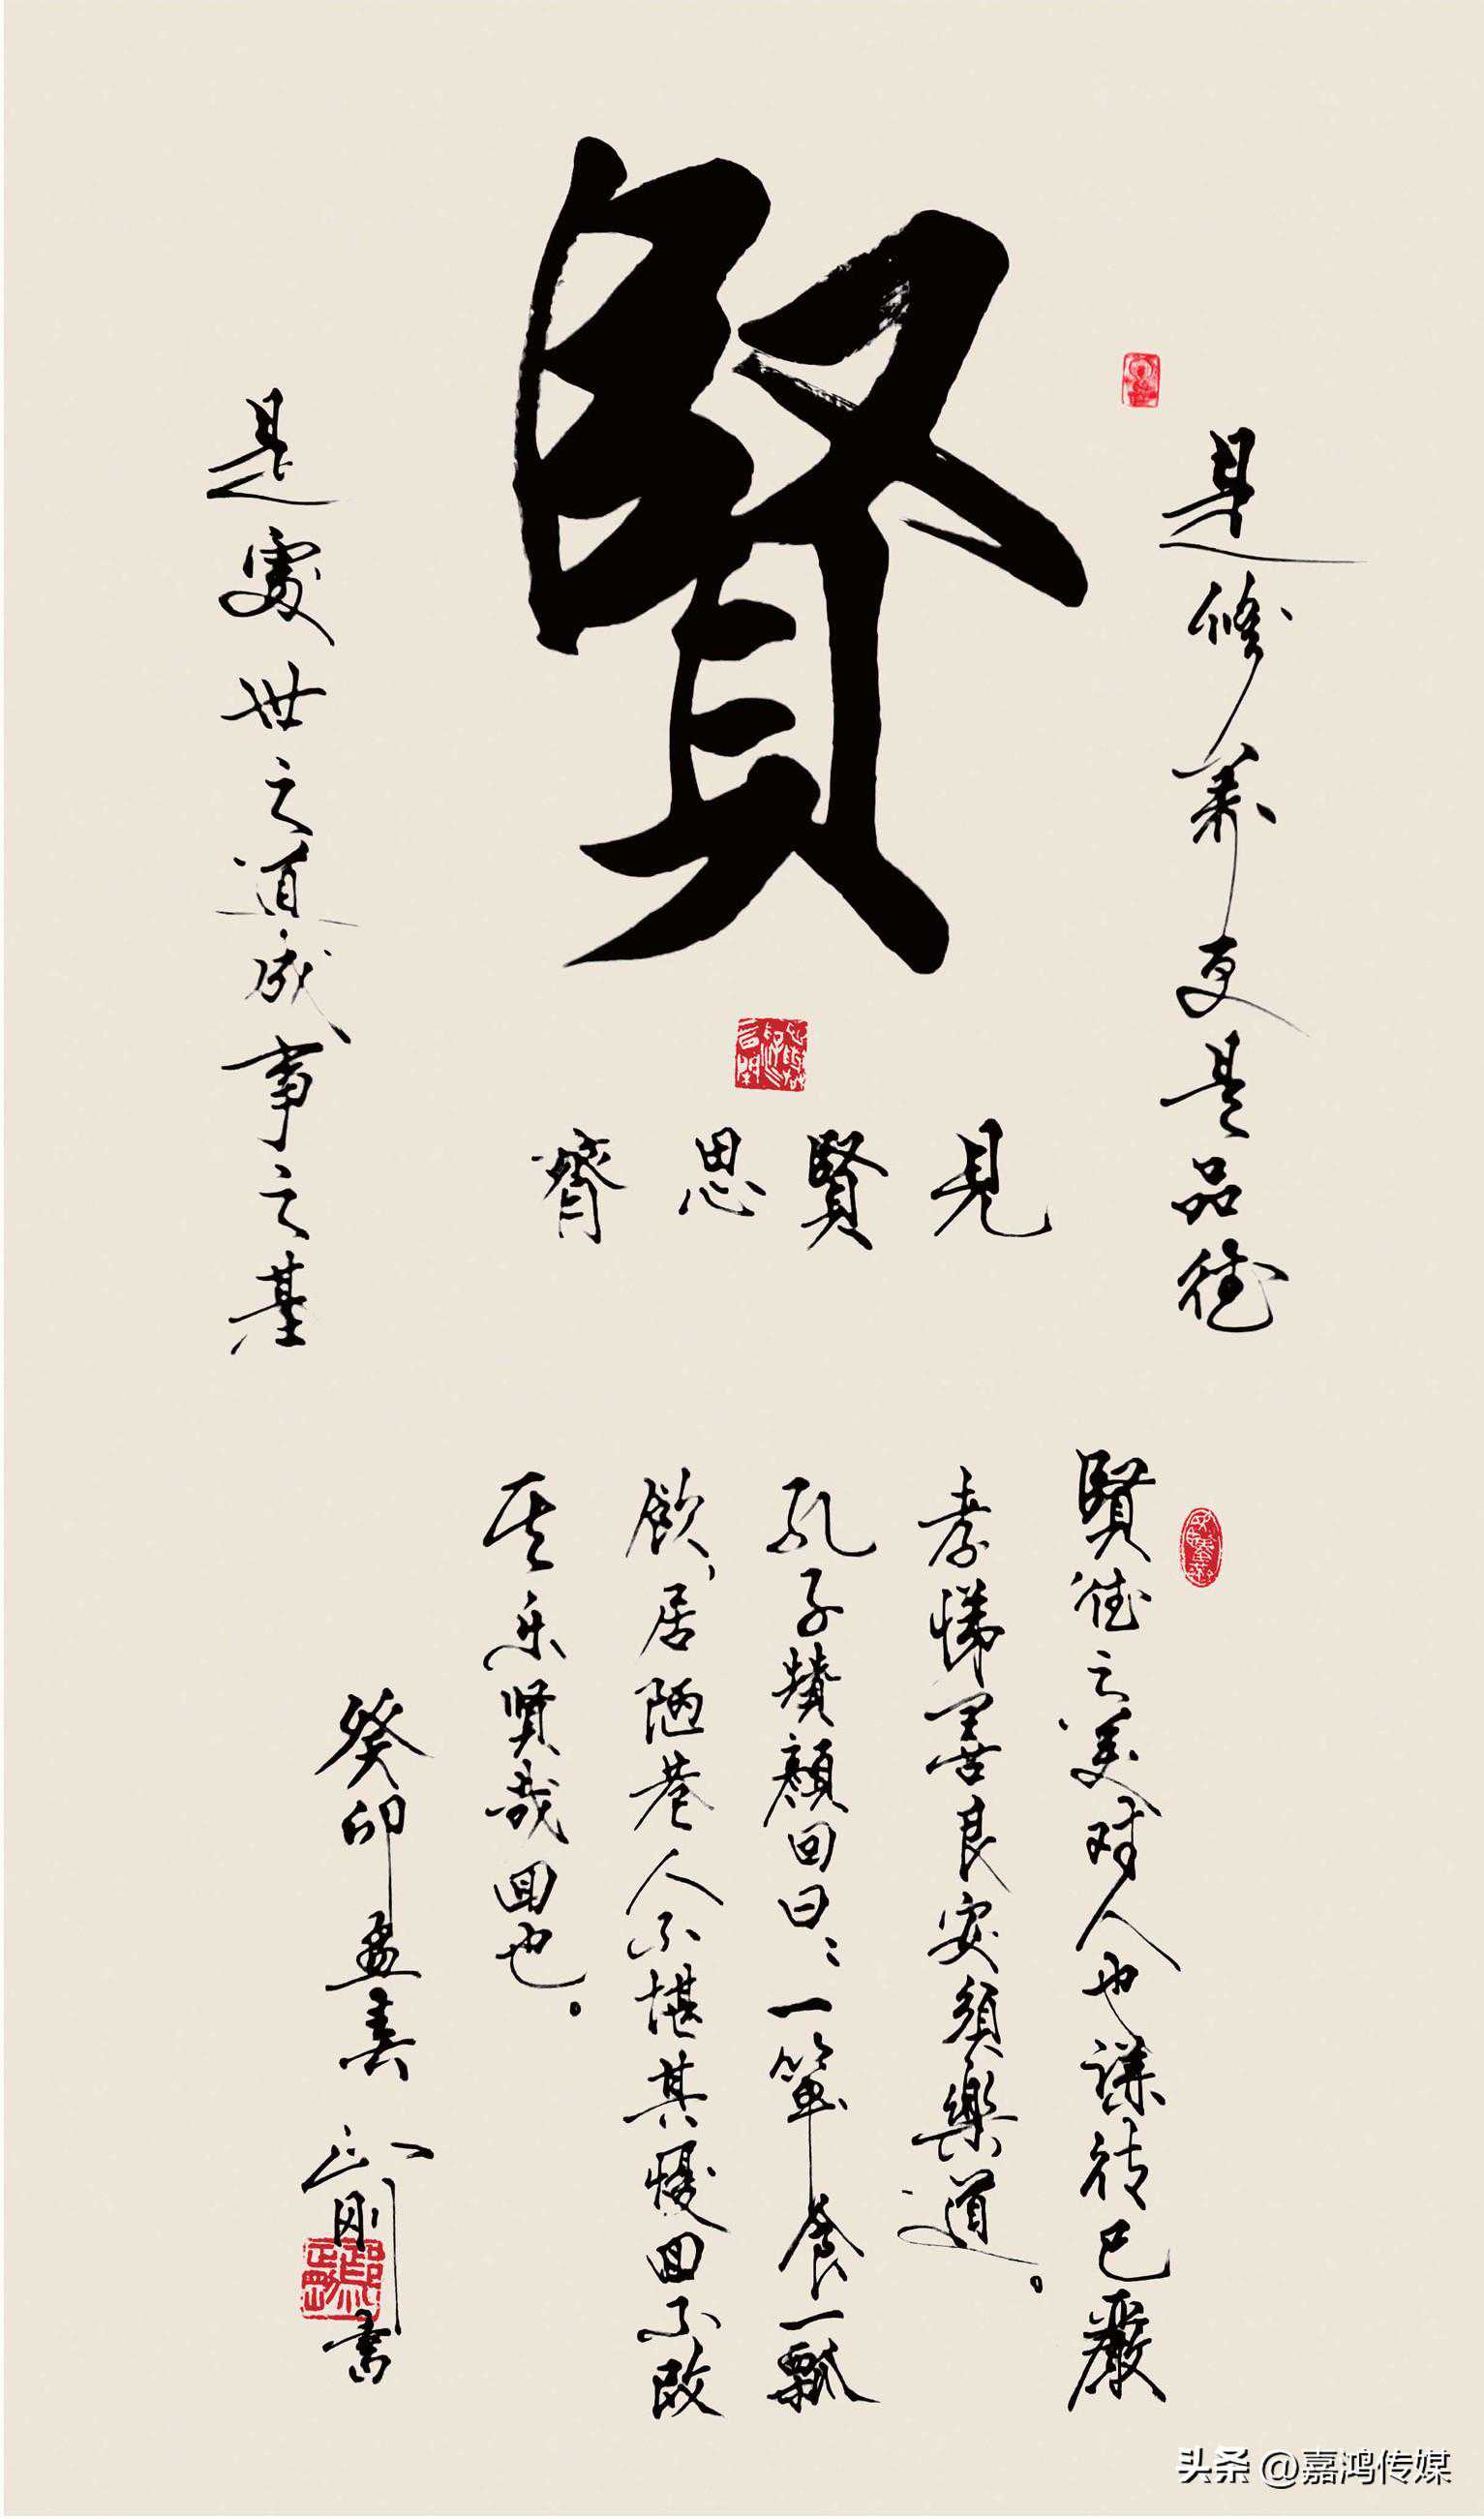 賢
是修養更是品德
是處世之道成事之基
見賢思齊
賢德之美對人也謙待己嚴
孝悌善良安須樂道。
孔子贊顏回曰：一簞食一瓢
飲，居陋巷人不堪其憂回不改
其乐贤哉回也。
癸卯孟春
刚书
头条 @嘉鸿传媒